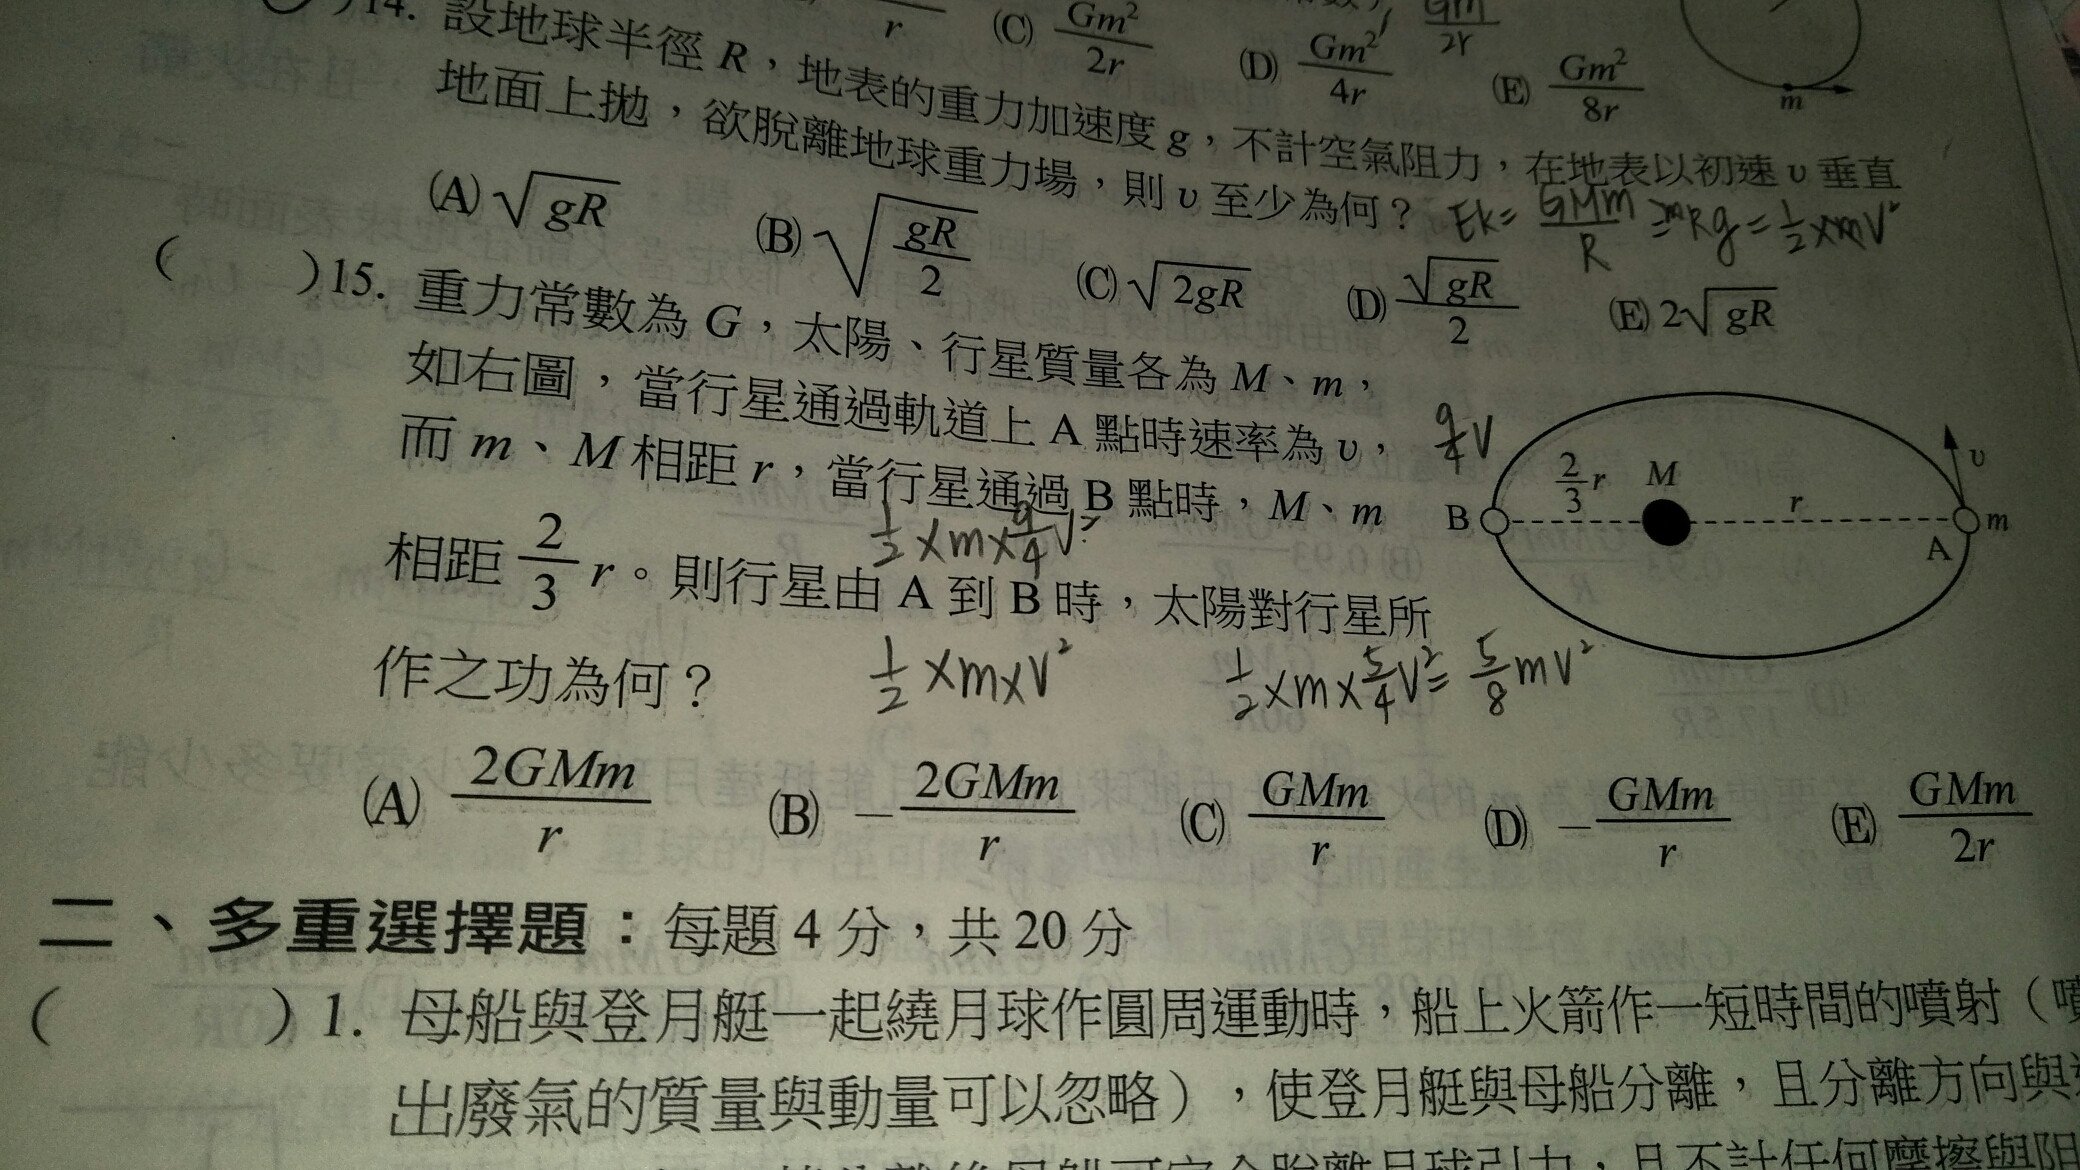 r (C) Gm²/2r (D) Gm²/4r (E) Gm²/8r
Gm/2r
m
)14. 設地球半徑 R，地表的重力加速度 g，不計空氣阻力，在地表以初速 υ 垂直
地面上拋，欲脫離地球重力場，則 υ 至少為何？
Ek = GMm/R ⇒ mRg = 1/2 × mV²
(A) √gR (B) √(gR/2) (C) √2gR (D) √gR/2 (E) 2√gR
( )15. 重力常數為 G，太陽、行星質量各為 M、m，
如右圖，當行星通過軌道上 A 點時速率為 υ，
而 m、M 相距 r，當行星通過 B 點時，M、m
相距 2/3 r。則行星由 A 到 B 時，太陽對行星所
作之功為何？
1/2 × m × 9/4 V²
1/2 × m × V²
1/2 × m × 5/4 V² = 5/8 mV²
9/4 V
B 2/3 r M r A m υ
(A) 2GMm/r (B) −2GMm/r (C) GMm/r (D) −GMm/r (E) GMm/2r
二、多重選擇題：每題 4 分，共 20 分
( )1. 母船與登月艇一起繞月球作圓周運動時，船上火箭作一短時間的噴射（噴
出廢氣的質量與動量可以忽略），使登月艇與母船分離，且分離方向與